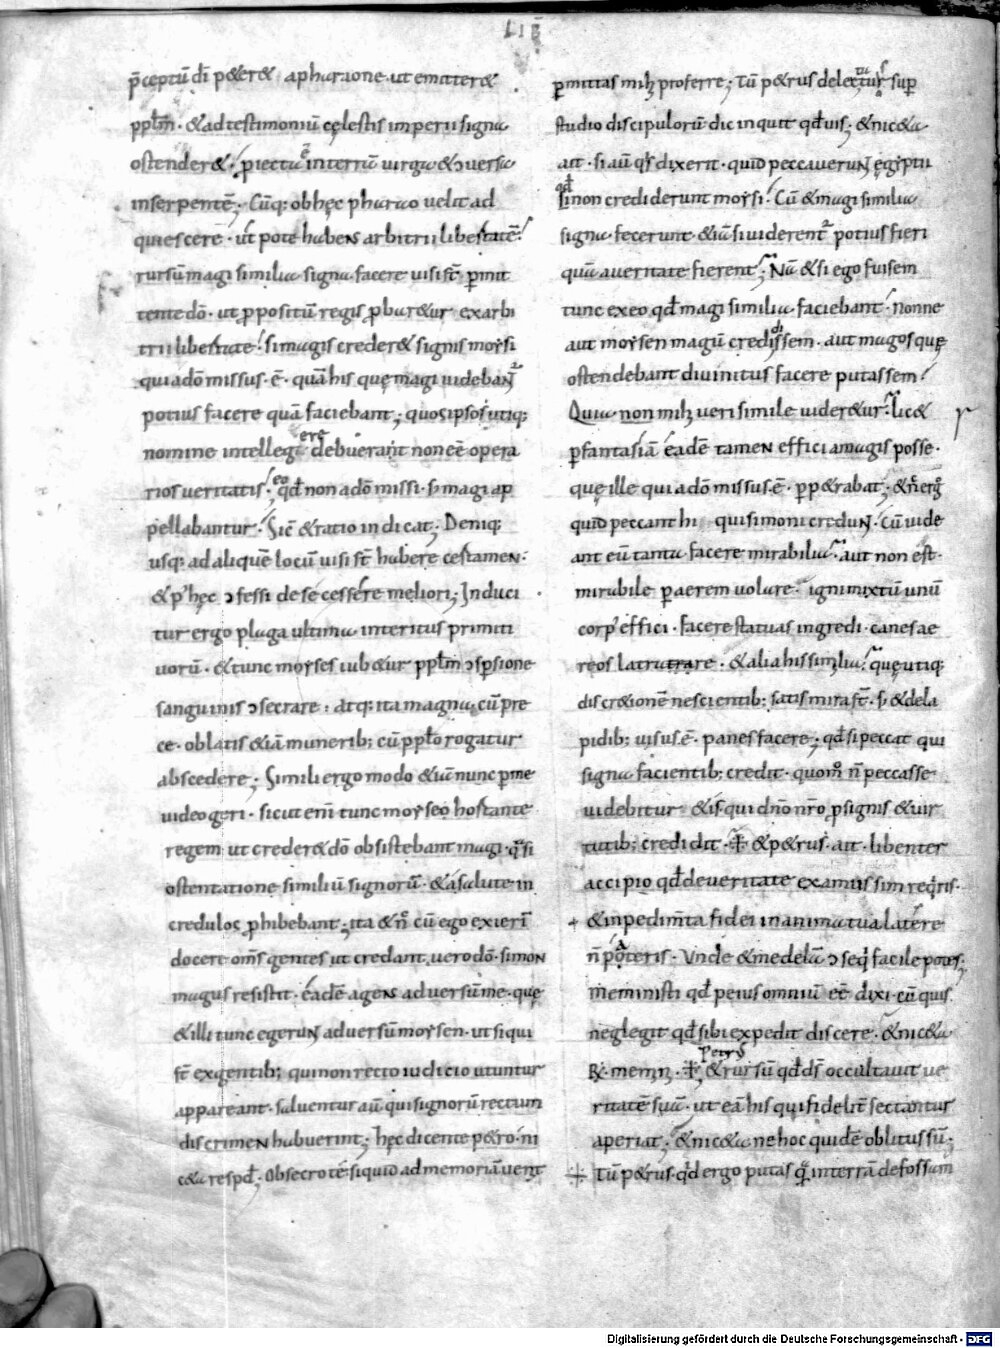 LII
p̄ceptū dī peteret a pharaone · ut emitteret
pplm̄ · & ad testimoniū cęlestis imperii signa
ostenderet · proiecta in terrā virga & ɔversa
in serpentē; Cūq: ob hęc pharao velit ad
quiescere · ut pote habens arbitrii libertatē!
rursū magi similia signa facere visi st̄ · permit
tente dō · ut propositū regis probaretur ex arbi
trii libertate! si magis crederet signis moysi
qui a dō missus · ē · quā his quę magi videbant̄
potius facere quā faciebant; quos ipso utiq:
nomine intellegere debuerant non eē opera
rios veritatis! eo qd̄ non a dō missi · s; magi ap
pellabantur! Sic & ratio indicat; Deniq;
usq: ad aliquē locū visi st̄ habere certamen ·
& p' hęc ɔfessi de se cessere meliori; Induci
tur ergo plaga ultima interitus primiti
vorū · & tunc moyses iubetur pplm̄ ɔspersione
sanguinis ɔsecrare · Atq: ita magna cū pre
ce · oblatis & iā munerib; cū pplo rogatur
abscedere; Simili ergo modo & iā nunc per me
video geri · sicut enī tunc moyseo hortante
regem ut crederet dō obsistebant magi · q̄si
ostentatione similiū signorū · & a salute in
credulos prohibebant; ita & nc̄ cū ego exierī
docere om̄s gentes ut credant vero dō · simon
magus resistit · eadē agens adversū me · quę
& illi tunc egerunt adversū moysen · ut si qui
st̄ ex gentib; qui non recto iudicio utuntur
appareant · salventur aū qui signorū rectum
discrimen habuerint; hęc dicente petro · ni
ceta respd̄; Obsecro te · si quid ad memoriā venit
permittas mihi proferre; Tū petrus delectatus sup
studio discipulorū dic inquit qd̄ vis; & niceta
ait · si aū qs dixerit · quid peccaverunt ęgyptii
qd̄ si non crediderunt moysi! Cū & magi similia
signa fecerunt · & iā si viderentur potius fieri
quā a veritate fierent; Nā & si ego fuisem
tunc ex eo qd̄ magi similia faciebant! nonne
aut moysen magū credidissem · aut magos quę
ostendebant divinitus facere putassem!
Quia non mihi veri simile videretur! licet
per fantasiā eadē tamen effici a magis posse ·
quę ille qui a dō missus · ē · perpetrabat; & n̄ ergo
quid peccant hi qui simoni credunt · Cū vide
ant eū tanta facere mirabilia! aut non est
mirabile per aerem volare · igni mixtū unū
corp' effici · facere statuas ingredi · canes ae
reos latrare · & alia his similia! quę utiq;
discretionē nescientib; satis mira st̄ · s; & de la
pidib; visus · ē · panes facere; qd̄ si peccat qui
signa facientib; credit · quom̊ n̄ peccasse
videbitur & is qui dn̄o nr̄o p signis & vir
tutib; credidit · & petrus · ait · libenter
accipio qd̄ de veritate examissim reqris ·
& inpedim̄ta fidei in anima tua latere
n̄ poteris · Unde & medelā ɔseqi facile potes;
meministi qd̄ peius omniū eē dixi · cū quis
neglegit qd̄ sibi expedit discere · & niceta
R̄ · memini · Petrus & rursū qd̄ d̄s occultavit ve
ritatē suā · ut eā his qui fidelit̄ sectantur
aperiat; & niceta ne hoc quidē oblitus sū;
Tū petrus · qd̄ ergo putas q̄ in terrā defossum
Digitalisierung gefördert durch die Deutsche Forschungsgemeinschaft - DFG